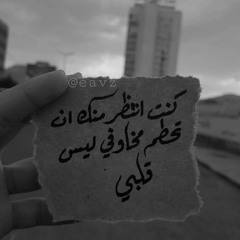 @eavz
كنت انتظر منك ان
تحطم مخاوفي ليس
قلبي